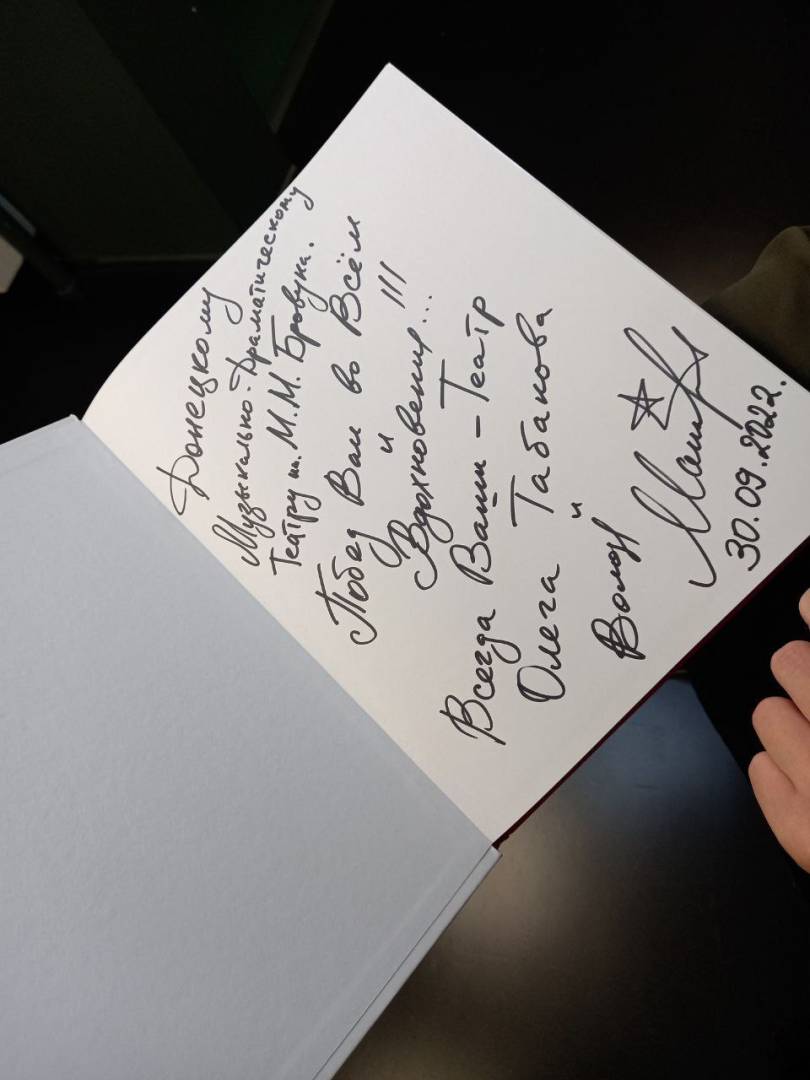 Донецкому
Музыкально-Драматическому
Театру им. М.М. Бровуна.
Побед Вам во Всём
и
Вдохновения!!!...
Всегда Ваши - Театр
Олега Табакова
и
30.09.2022.